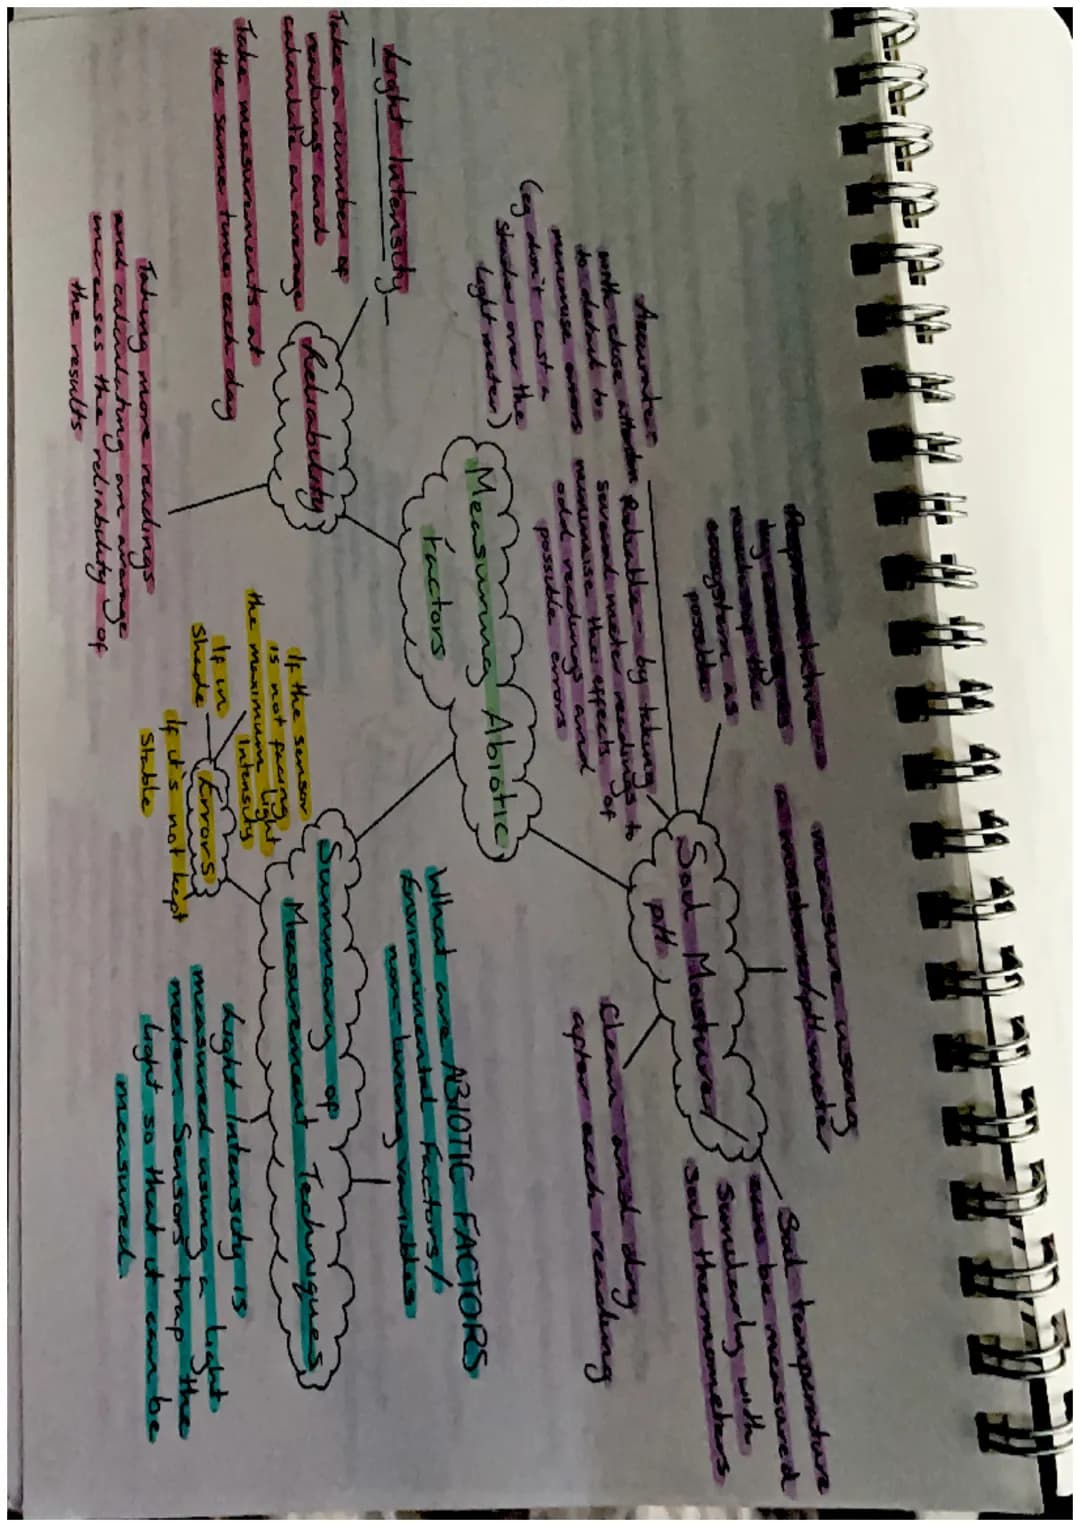 Representative -
by measuring
much of the
ecosystem as
possible
measure using
a moisture/pH meter
Soil temperature
can be measured
Similarly with
Soil thermometers
Accurate -
with close attention
to detail to
minimise errors
(eg don't cast a
shadow over the
light meter)
Reliable - by taking
several meter readings to
minimise the effects of
odd readings and
possible errors
Soil Moisture/
pH
Clean and dry
after each reading
Measuring Abiotic
factors
What are ABIOTIC FACTORS
Environmental Factors/
non-living variables
Light Intensity
Take a number of
readings and
calculate an average
Take measurements at
the same time each day
Reliability
Taking more readings
and calculating an average
increases the reliability of
the results
Summary of
Measurement Techniques
If the sensor
is not facing
the maximum light
intensity
If in
Shade
Errors
If it's not kept
Stable
Light Intensity is
measured using a light
meter. Sensors trap the
light so that it can be
measured.